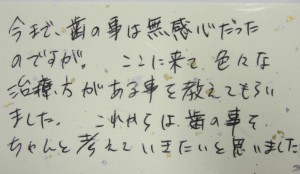 今まで、歯の事は無感心だった
のですが、ここに来て色々な
治療方がある事を教えてもらい
ました。これからは歯の事を
ちゃんと考えていきたいと思いました